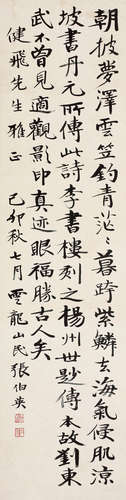 朝披夢澤雲笠釣青茫茫暮跨紫鱗去海氣侵肌涼
坡書丹元所傳此詩李書樓刻之楊州世尟傳本故劉東
武不曾見適觀影印真迹眼福勝古人矣
健飛先生雅正 己卯秋七月雲龍山民張伯英